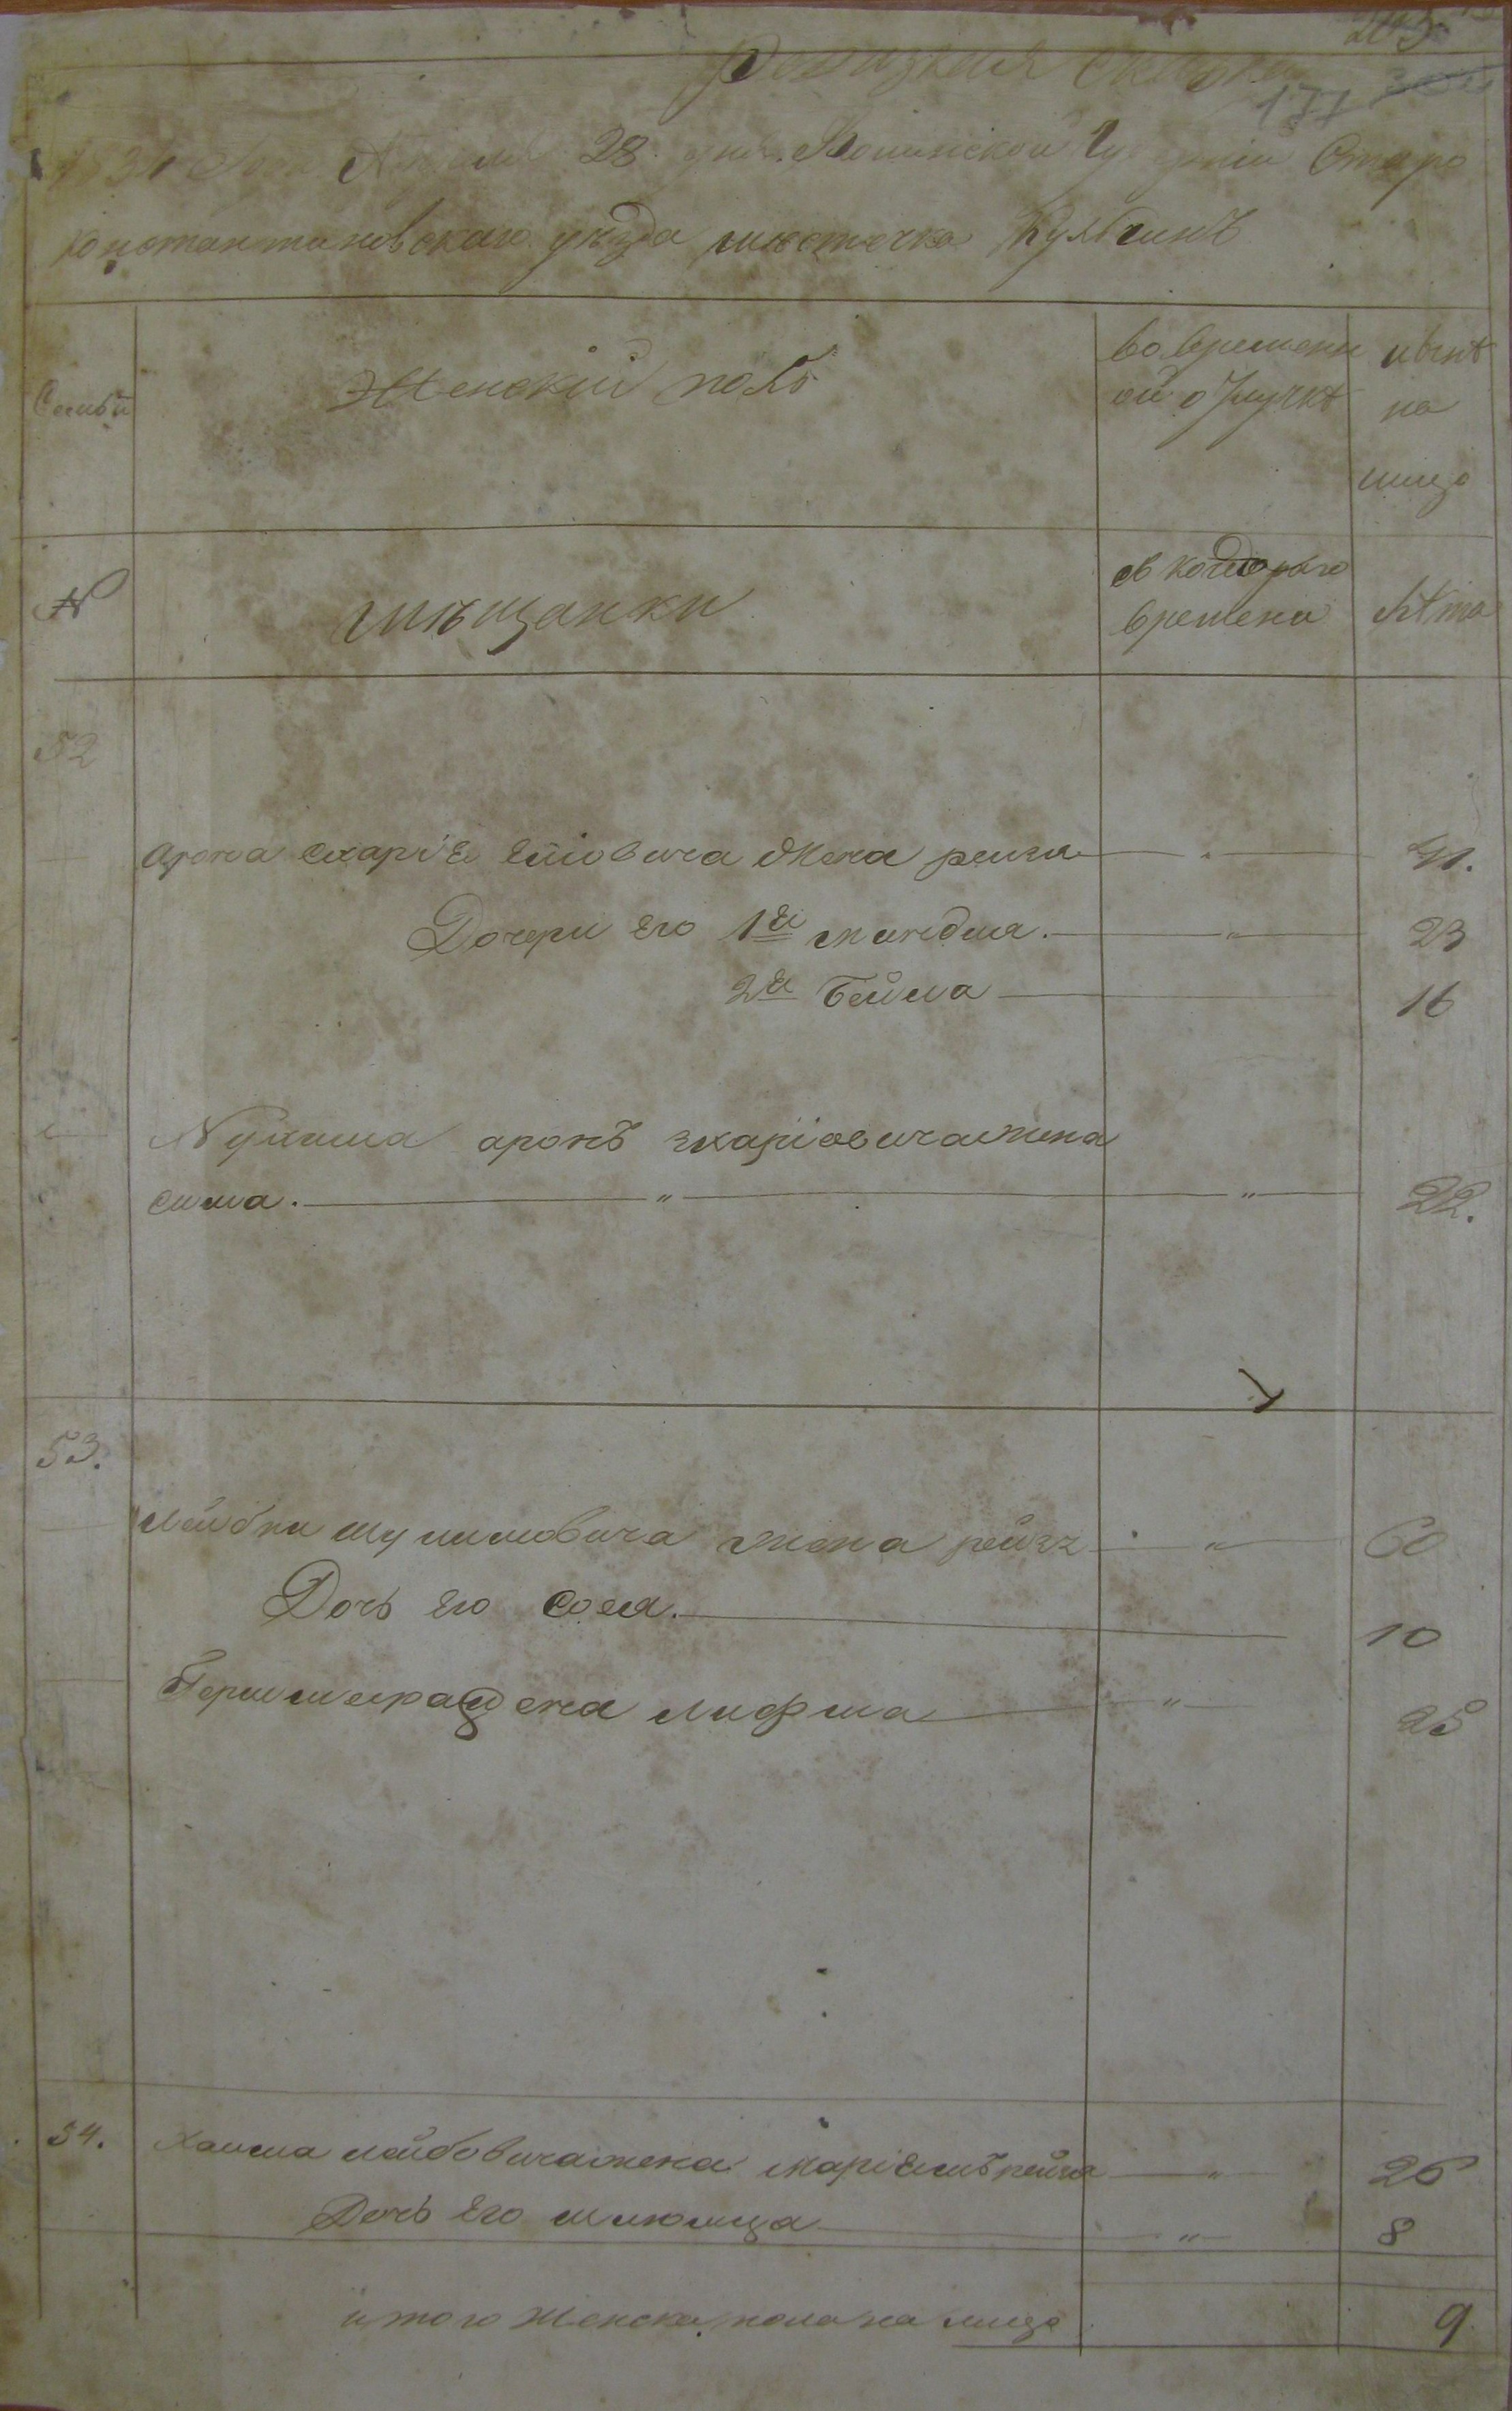 203
Ревизская сказка
177
1834 Года Апреля 28 дня. Волынской Губерніи Старо
константиновскаго уезда местечка Кульчинъ
Семьи
Женский полъ
во временн
ой отлучкѣ
нынѣ
на
лицо
№
мещанки
съ которого
времена
лѣта
52
Арона скаріе жена 41.
Дочери его 1я миндля. " 23
2я Бейла 16
Нухима аронъ зкаріовича жена
сима. " " 22.
53.
Лейбки шулимовича жена рейзя " 60
Дочь его сося. 10
жена лифша " 25
54.
Хаима лейбовича жена маріемъ рейзя " 26
Дочь его " 8
итого женска. пола на лицо 9